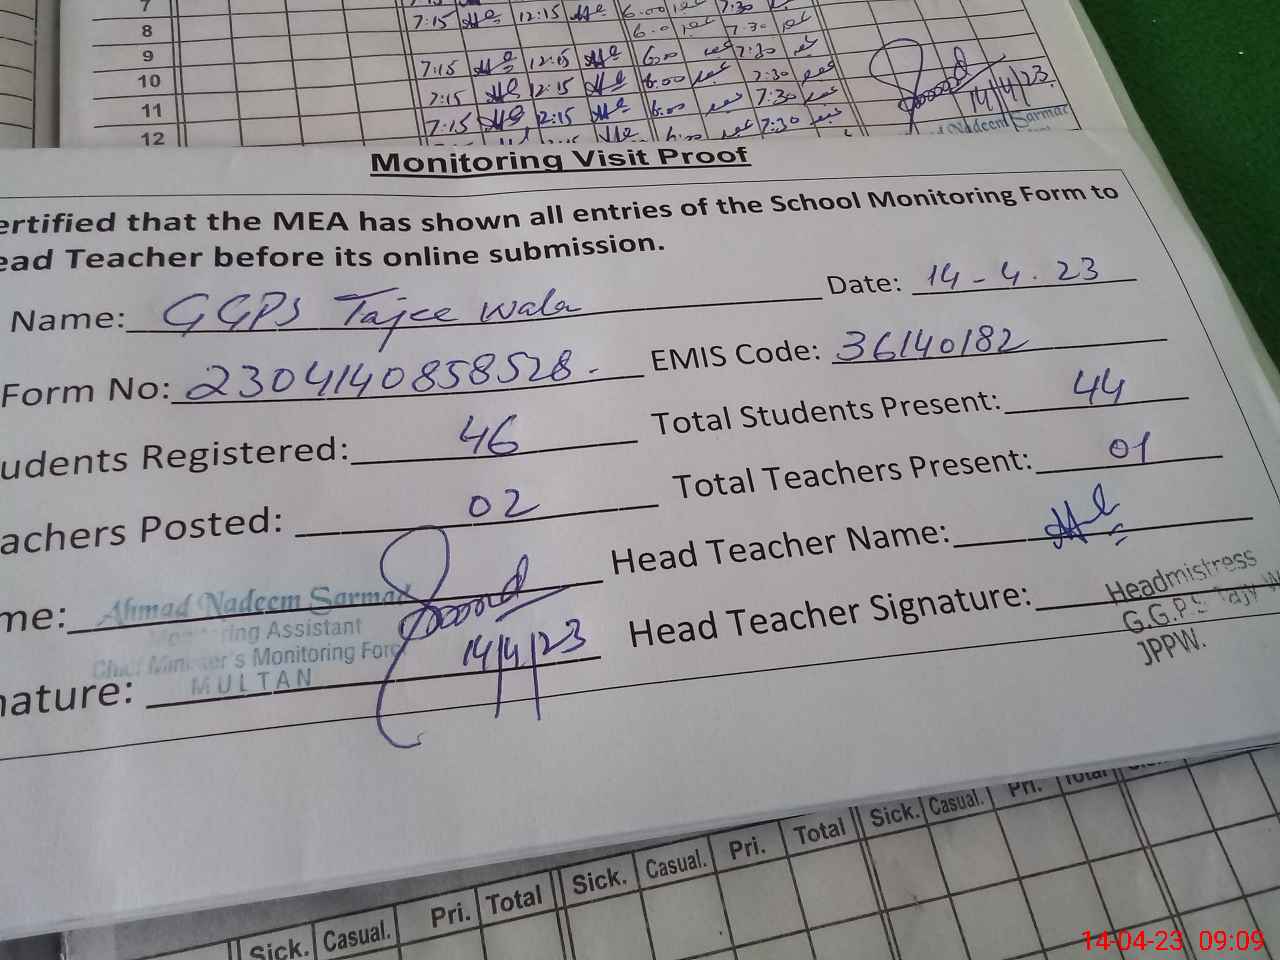 7
7:15 12:15 6:00 7:30
8
6:0 7:30
9
7:15 12:15 6:00 7:30
10
7:15 12:15 6:00 7:30
11
7:15 12:15 6:00 7:30
12
6:00 7:30
14/4/23
Nadeem Sarmad
Monitoring Visit Proof
ertified that the MEA has shown all entries of the School Monitoring Form to
ead Teacher before its online submission.
Name: GGPS Tajee wala Date: 14-4.23
Form No: 2304140858528. EMIS Code: 36140182
udents Registered: 46 Total Students Present: 44
achers Posted: 02 Total Teachers Present: 01
Head Teacher Name:
me: Ahmad Nadeem Sarmad
Monitoring Assistant
Chief Minister's Monitoring Forc
MULTAN
nature: 14/4/23
Head Teacher Signature: Headmistress
G.G.P.S Tajy W
JPPW.
Sick. Casual. Pri. Total Sick. Casual. Pri. Total Sick. Casual. Pri. Total
14-04-23 09:09